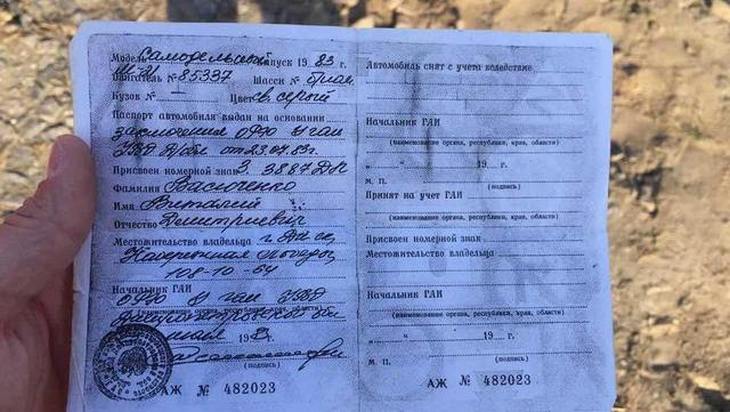 Модель Самодельный Выпуск 1983 г.
Двигатель № 85337 Шасси №
Кузов № — Цвет св. серый
Паспорт автомобиля выдан на основании
заключения ОРЭО УГАИ
УВД от 23.07.83г.
Присвоен номерной знак 3887 ДП
Фамилия Васюченко
Имя Виталий
Отчество Дмитриевич
Местожительство владельца г.
Набережная Победы
108-10-64
Начальник ГАИ
УГАИ УВД
19
(подпись)
АЖ № 482023
Автомобиль снят с учета вследствие
Начальник ГАИ
(наименование органа, республики, края, области)
" " 19 г.
М. П. (подпись)
Принят на учет ГАИ
(наименование органа, республики, края, области)
Присвоен номерной знак
Местожительство владельца
Начальник ГАИ
(наименование органа, республики, края, области)
" " 19 г.
М. П. (подпись)
АЖ № 482023